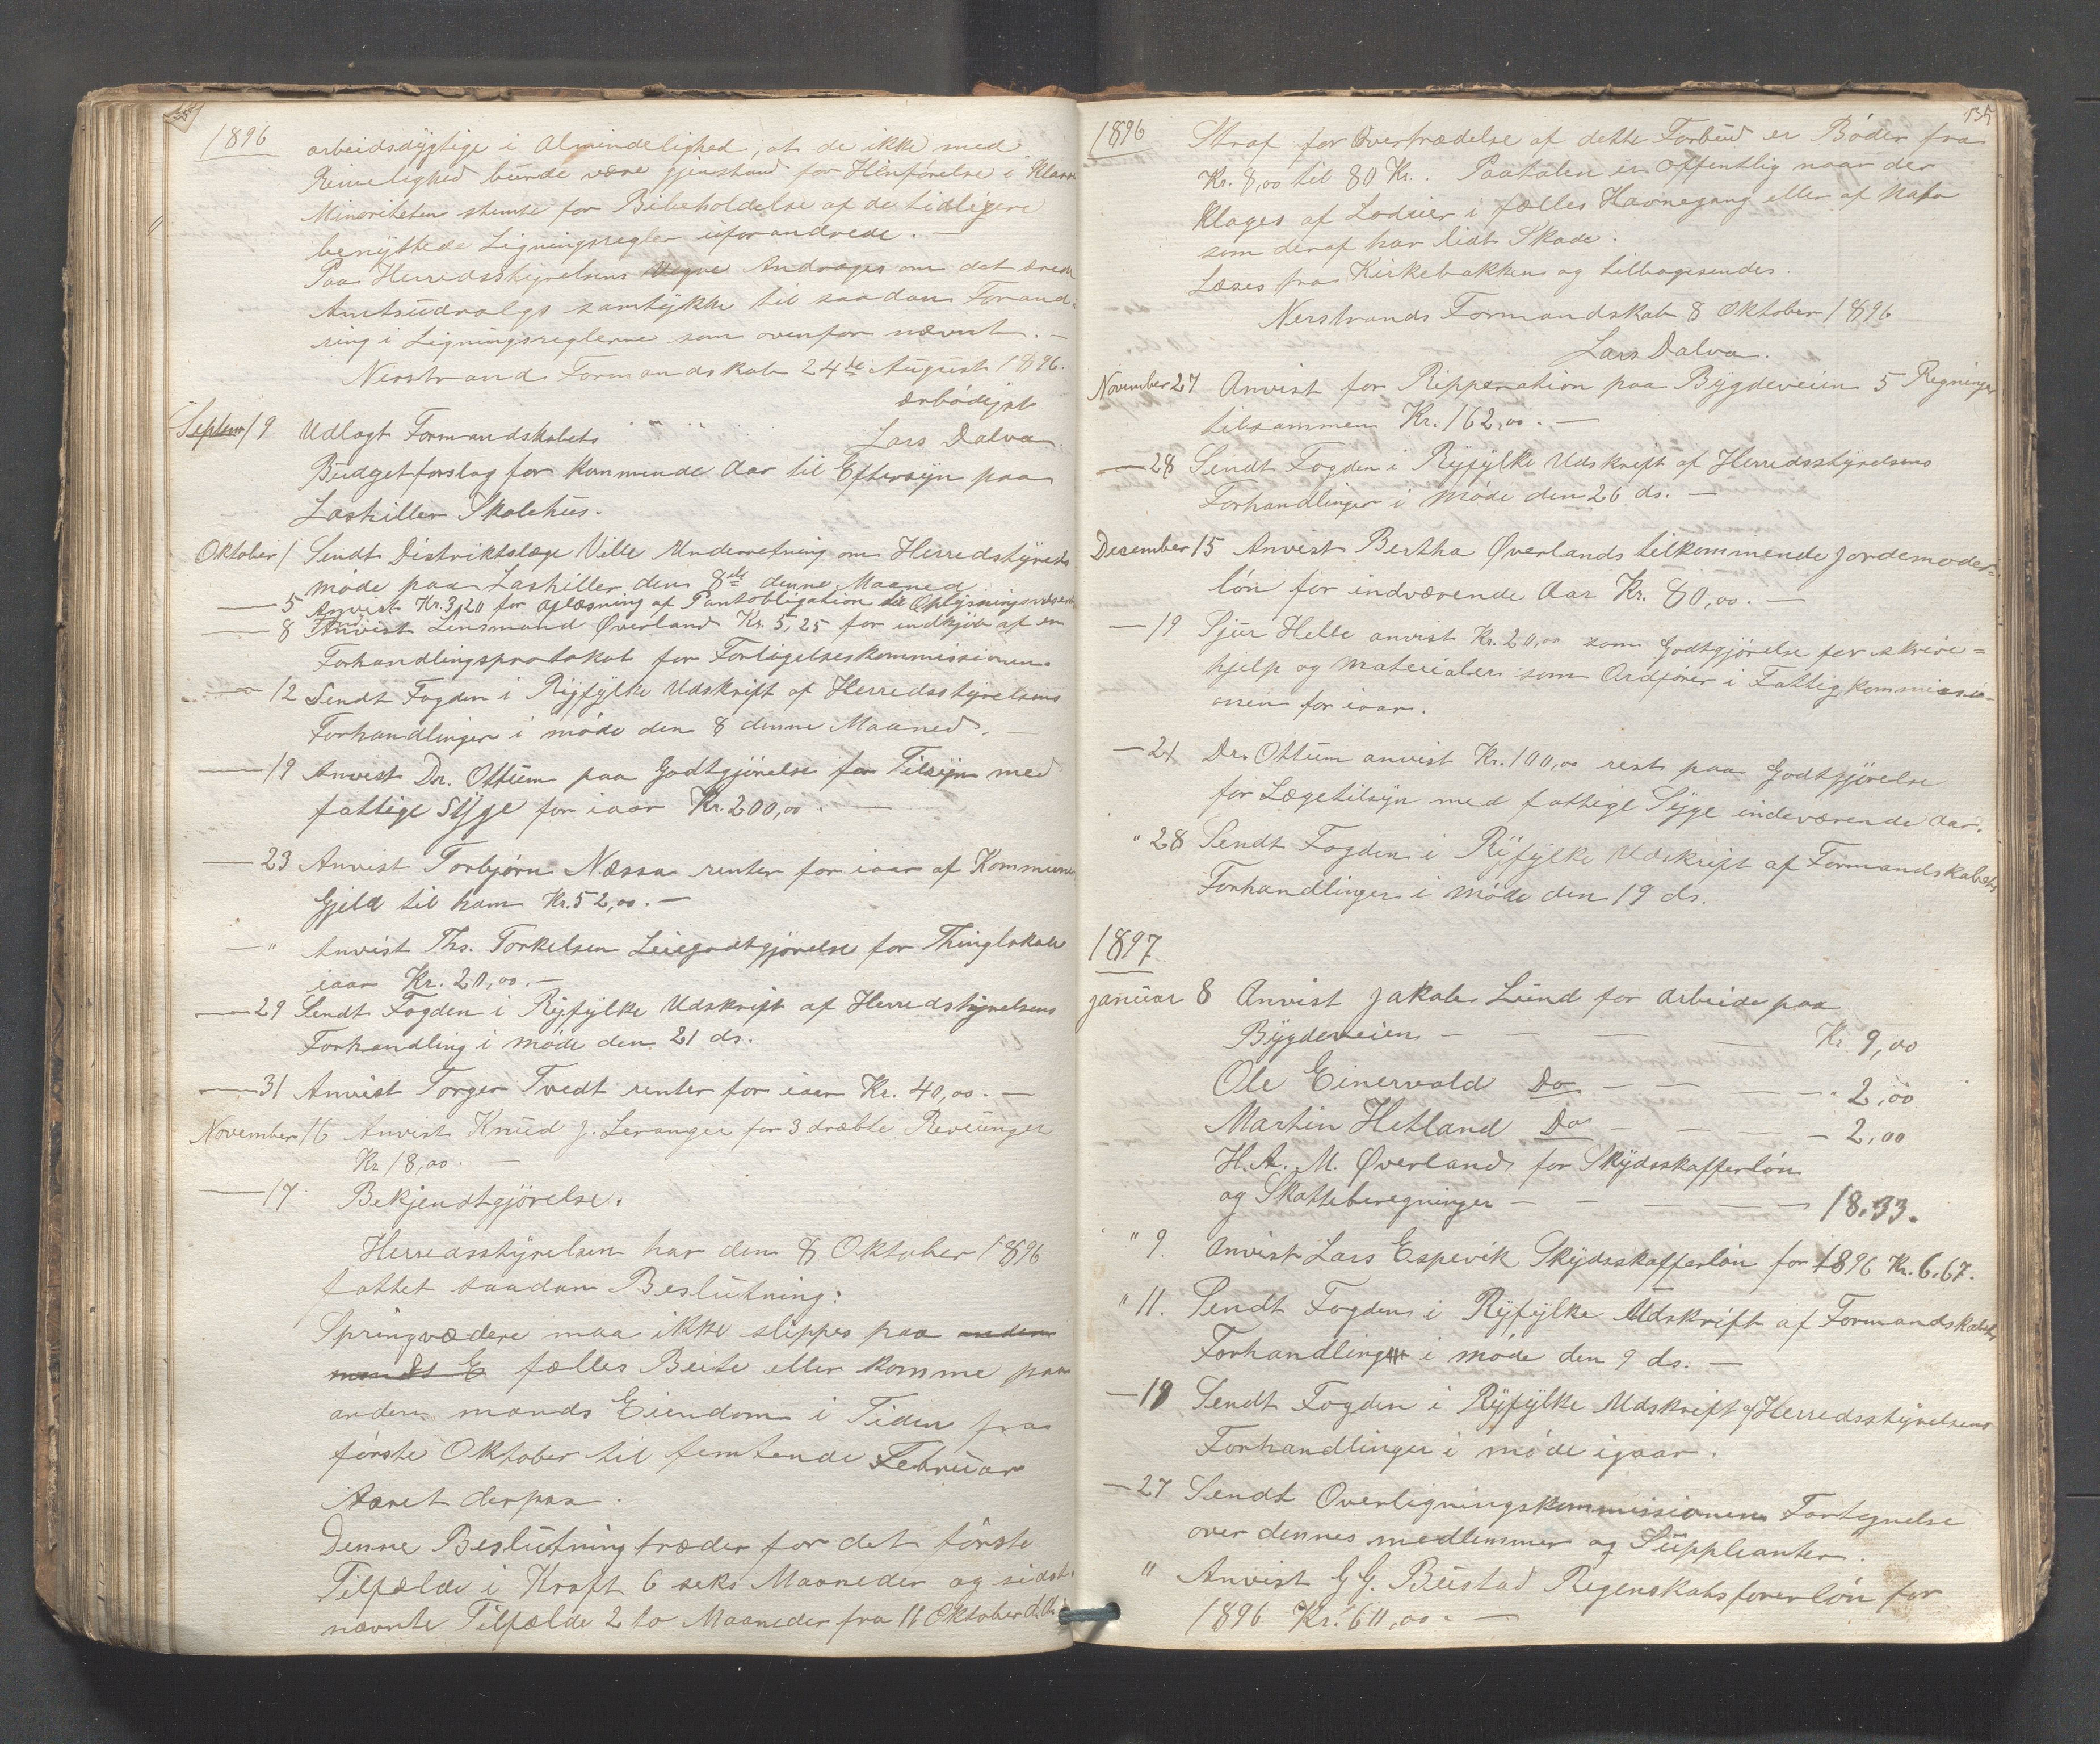 1896
arbeidsdygtige i Almindelighed, at de ikke med
Rimelighed burde være gjenstand for Henførelse i Klasse
Minoriteten stemte for Bibeholdelse af de tidligere
benyttede Ligningsregler uforandrede. —
Paa Herredsstyrelsens Vegne Andrages om det ærede
Amtsudvalgs samtykke til saadan Forand-
ring i Ligningsreglerne som ovenfor nævnt. —
Nerstrand Formandskab 24de August 1896.
ærbødigst
Septem 19 Udlagt Formandskabets Lars Dalva.
Budgetforslag for kommende Aar til Eftersyn paa
Laskillen Skolehus.
Oktober 1 Sendt Distriktslæge Ville Underretning om Herredstyrets
møde paa Laskillen den 8de denne Maaned
— 5 Anvist Kr. 3,20 for aflæsning af Pantobligation til Oplysningsvæsenet
— 8 Anvist Lensmand Øverland Kr. 5,25 for indkjøb af en
Forhandlingsprotokol for Forligelseskommissionen.
— 12 Sendt Fogden i Ryfylke Udskrift af Herredsstyrelsens
Forhandlinger i møde den 8 denne Maaned. —
— 19 Anvist Dr. Ottum paa Godtgjørelse for Tilsyn med
fattige Syge for iaar Kr. 200,00. —
— 23 Anvist Torbjørn Næssa renter for iaar af Kommune
Gjeld til ham Kr. 52,00. —
— " Anvist Ths. Torkelsen Leiegodtgjørelse for Thinglokale
iaar Kr. 20,00. —
— 29 Sendt Fogden i Ryfylke Udskrift af Herredstyrelsens
Forhandling i møde den 21 ds.
— 31 Anvist Torger Tvedt renter for iaar Kr. 40,00. —
November 16 Anvist Knud J. Leranger for 3 dræbte Revunger
Kr 18,00. —
— 17 Bekjendtgjørelse.
Herredsstyrelsen har den 8 Oktober 1896
fattet saadan Beslutning:
Springvædere maa ikke slippes paa anden
mands E fælles Beite eller komme paa
anden mands Eiendom i Tiden fra
første Oktober til femtende Februar
Aaret derpaa.
Denne Beslutning træder for det første
Tilfælde i Kraft 6 seks Maaneder og sidst-
nævnte Tilfælde 2 to Maaneder fra 11 Oktober d.A.
135
1896 Straf for Overtrædelse af dette Forbud er Bøder fra
Kr. 8,00 til 80 Kr. Paatalen er Offentlig naar der
Klages af Lodeier i fælles Havnegang eller af Nabo
som deraf har lidt Skade.
Læses fra Kirkebakken og tilbagesendes.
Nerstrands Formandskab 8 Oktober 1896
Lars Dalva.
November 27 Anvist for Ripperation paa Bygdeveien 5 Regninger
tilsammen Kr. 162,00. —
— 28 Sendt Fogden i Ryfylke Udskrift af Herredsstyrelsens
Forhandlinger i møde den 26 ds. —
December 15 Anvist Bertha Øverlands tilkommende jordemoder-
løn for indværende Aar Kr. 80,00. —
— 19 Sjur Helle anvist Kr. 20,00 som Godtgjørelse for skrive-
hjelp og materialer som Ordfører i Fattigkommissi-
onen for iaar.
— 21 Dr. Ottum anvist Kr. 100,00 rest paa Godtgjørelse
for Lægetilsyn med fattige Syge indeværende Aar.
" 28 Sendt Fogden i Ryfylke Udskrift af Formandskabets
Forhandlinger i møde den 19 ds.
1897
Januar 8 Anvist Jakob Lund for arbeide paa
Bygdeveien — — — — Kr. 9,00
Ole Einervold Do — — — " 2,00
Martin Hetland Do — — — — 2,00
H. A. M. Øverland for Skydsskafferløn
og Skatteberegninger — — — — 18.33.
" 9. Anvist Lars Espevik Skydsskafferløn for 1896 Kr. 6.67.
" 11. Sendt Fogden i Ryfylke Udskrift af Formandskabets
Forhandlinger i møde den 9 ds. —
— 19 Sendt Fogden i Ryfylke Udskrift af Herredsstyrelsens
Forhandlinger i møde igaar.
— 27 Sendt Overligningskommissionen Fortegnelse
over dennes medlemmer og Suppleanter.
" Anvist G. G. Bustad Regnskabsførerløn for
1896 Kr. 60,00. —